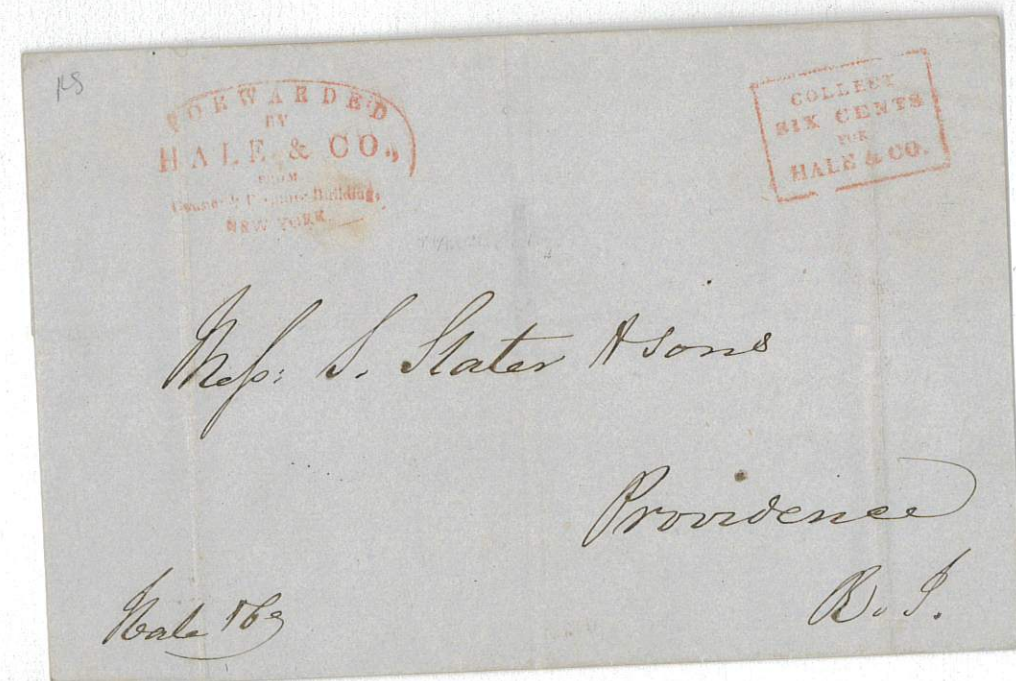 FORWARDED
BY
HALE & CO.,
FROM
Building,
NEW YORK.
COLLECT
SIX CENTS
FOR
HALE & CO.
Mess: S. Slater & Sons
Providence
R. I.
Hale & Co